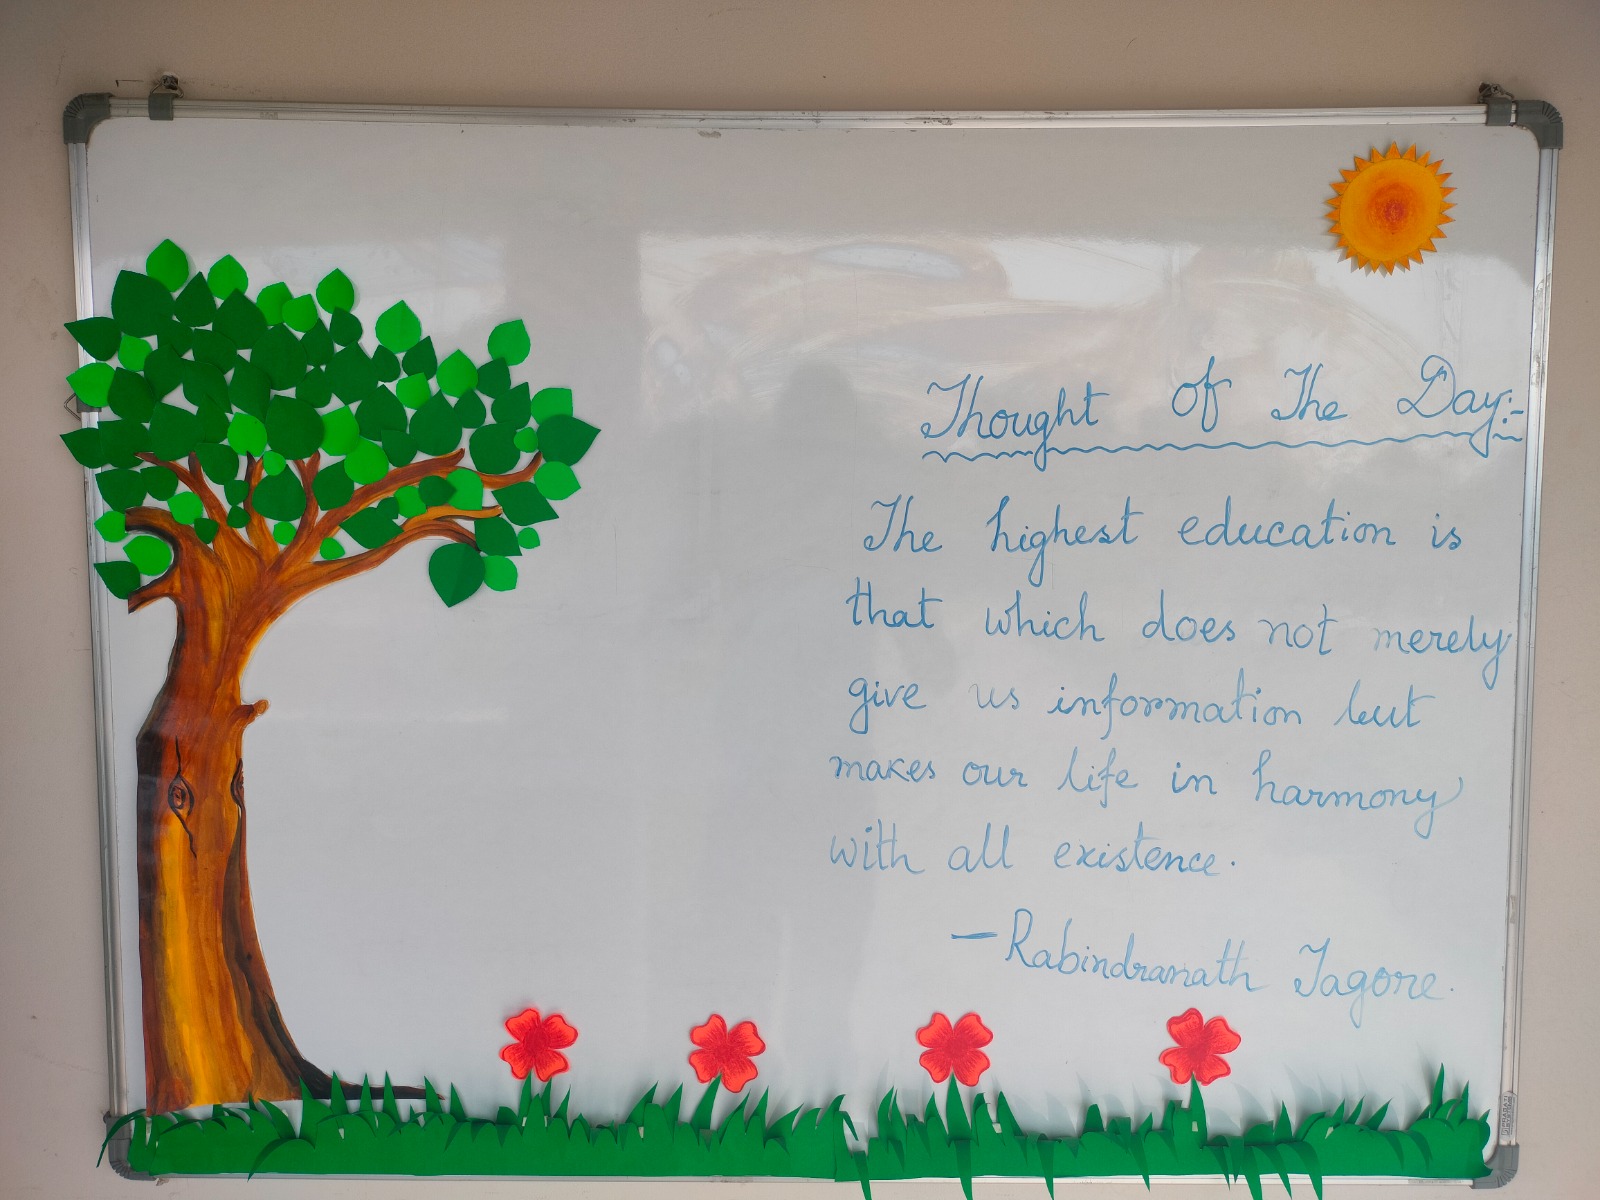 Thought of The Day:-
The highest education is
that which does not merely
give us information but
makes our life in harmony
with all existence.
- Rabindranath Tagore.